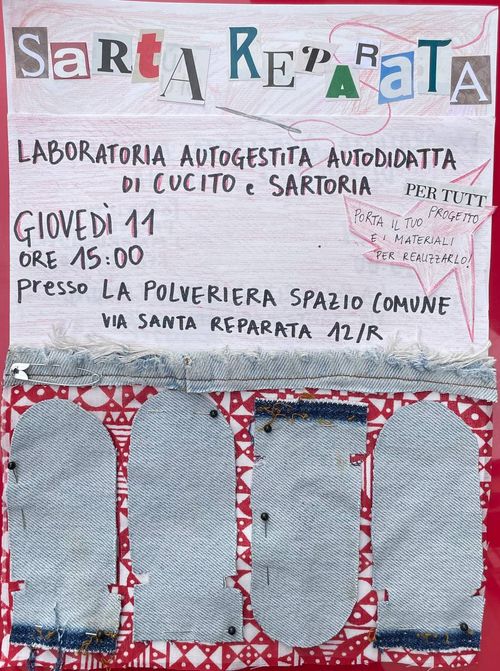 SaRtA REPARATA
LABORATORIA AUTOGESTITA AUTODIDATTA
DI CUCITO e SARTORIA
PER TUTT
GIOVEDÌ 11
ORE 15:00
PORTA IL TUO PROGETTO
E I MATERIALI
PER REALIZZARLO!
presso LA POLVERIERA SPAZIO COMUNE
VIA SANTA REPARATA 12/R